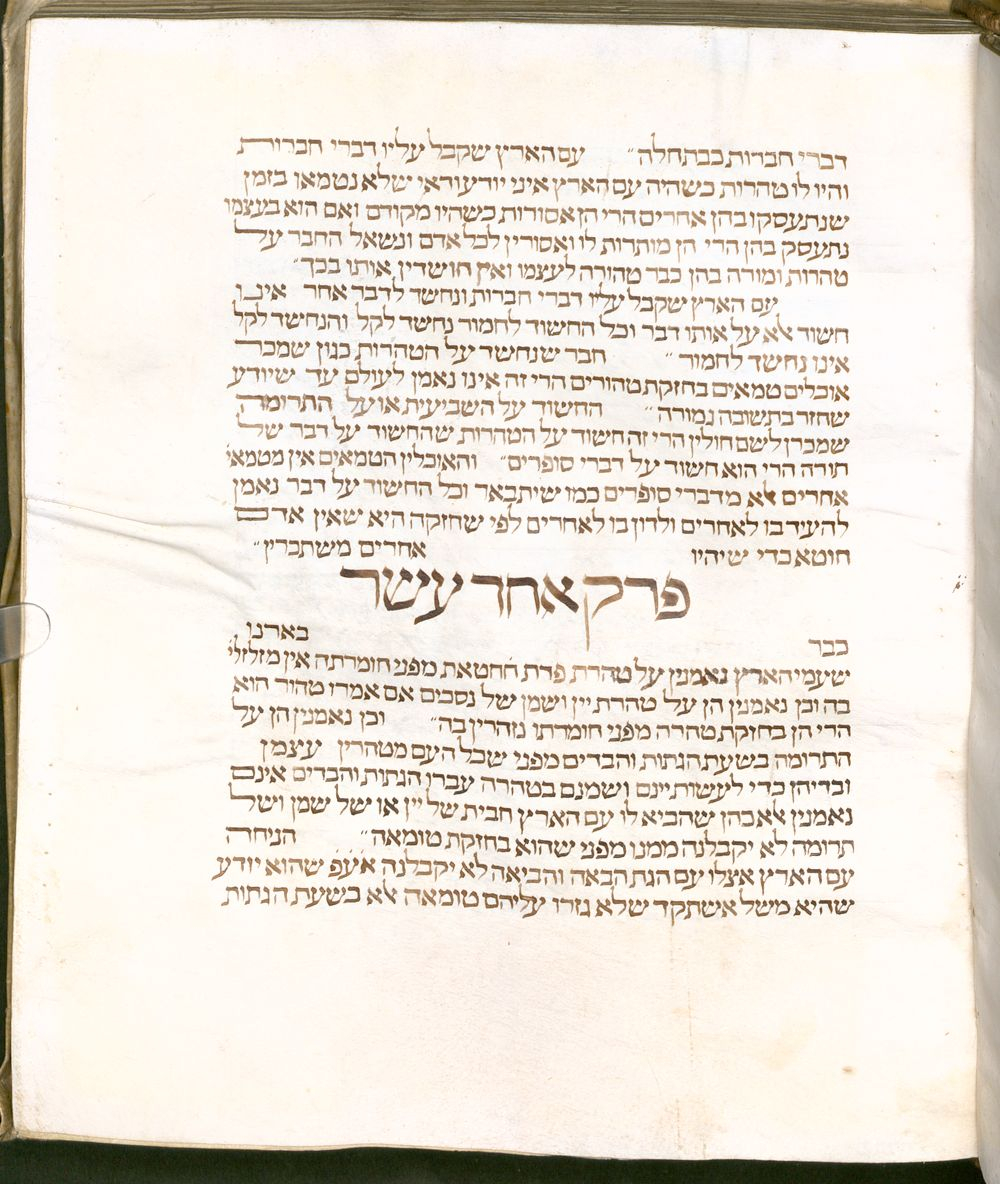 דברי חברות כבתחלה״ עם הארץ שקבל עליו דברי חברות
והיו לו טהרות כשהיה עם הארץ איני יודע ודאי שלא נטמאו בזמן
שנתעסקו בהן אחרים הרי הן אסורות כשהיו מקודם ואם הוא בעצמו
נתעסק בהן הרי הן מותרות לו ואסורין לכל אדם ונשאל החבר על
טהרות ומורה בהן כבר טהורה לעצמו ואין חושדין אותו בכך״
עם הארץ שקבל עליו דברי חברות ונחשד לדבר אחר אינו
חשוד אלא על אותו דבר וכל החשוד לחמור נחשד לקל והנחשד לקל
אינו נחשד לחמור״ חבר שנחשד על הטהרות כגון שמכר
אוכלים טמאים בחזקת טהורים הרי זה אינו נאמן לעולם עד שיודע
שחזר בתשובה גמורה״ החשוד על השביעית או על התרומה
שמכרן לשם חולין הרי זה חשוד על הטהרות שהחשוד על דבר של
תורה הרי הוא חשוד על דברי סופרים״ והאוכלין הטמאים אין מטמאי
אחרים אלא מדברי סופרים כמו שיתבאר וכל החשוד על דבר נאמן
להעיד בו לאחרים ולדון בו לאחרים לפי שחזקה היא שאין אדם
חוטא כדי שיהיו אחרים משתכרין״
פרק אחד עשר
כבר בארנו
שעמי הארץ נאמנין על טהרת פרת חחטאת מפני חומרתה אין מזלזלי
בה וכן נאמנין הן על טהרת יין ושמן של נסכים אם אמרו טהור הוא
הרי הן בחזקת טהרה מפני חומרתו נזהרין בה״ וכן נאמנין הן על
התרומה בשעת הגתות והבדים מפני שכל העם מטהרין עצמן
ובדיהן כדי לעשות יינם ושמנם בטהרה עברו הגתות והבדים אינם
נאמנין אלא בהן שהביא לו עם הארץ חבית של יין או של שמן ושל
תרומה לא יקבלנה ממנו מפני שהוא בחזקת טומאה״ הניחה
עם הארץ אצלו עם הגת הבאה והביאה לא יקבלנה אעפ שהוא יודע
שהיא משל אשתקד שלא גזרו עליהם טומאה אלא בשעת הגתות